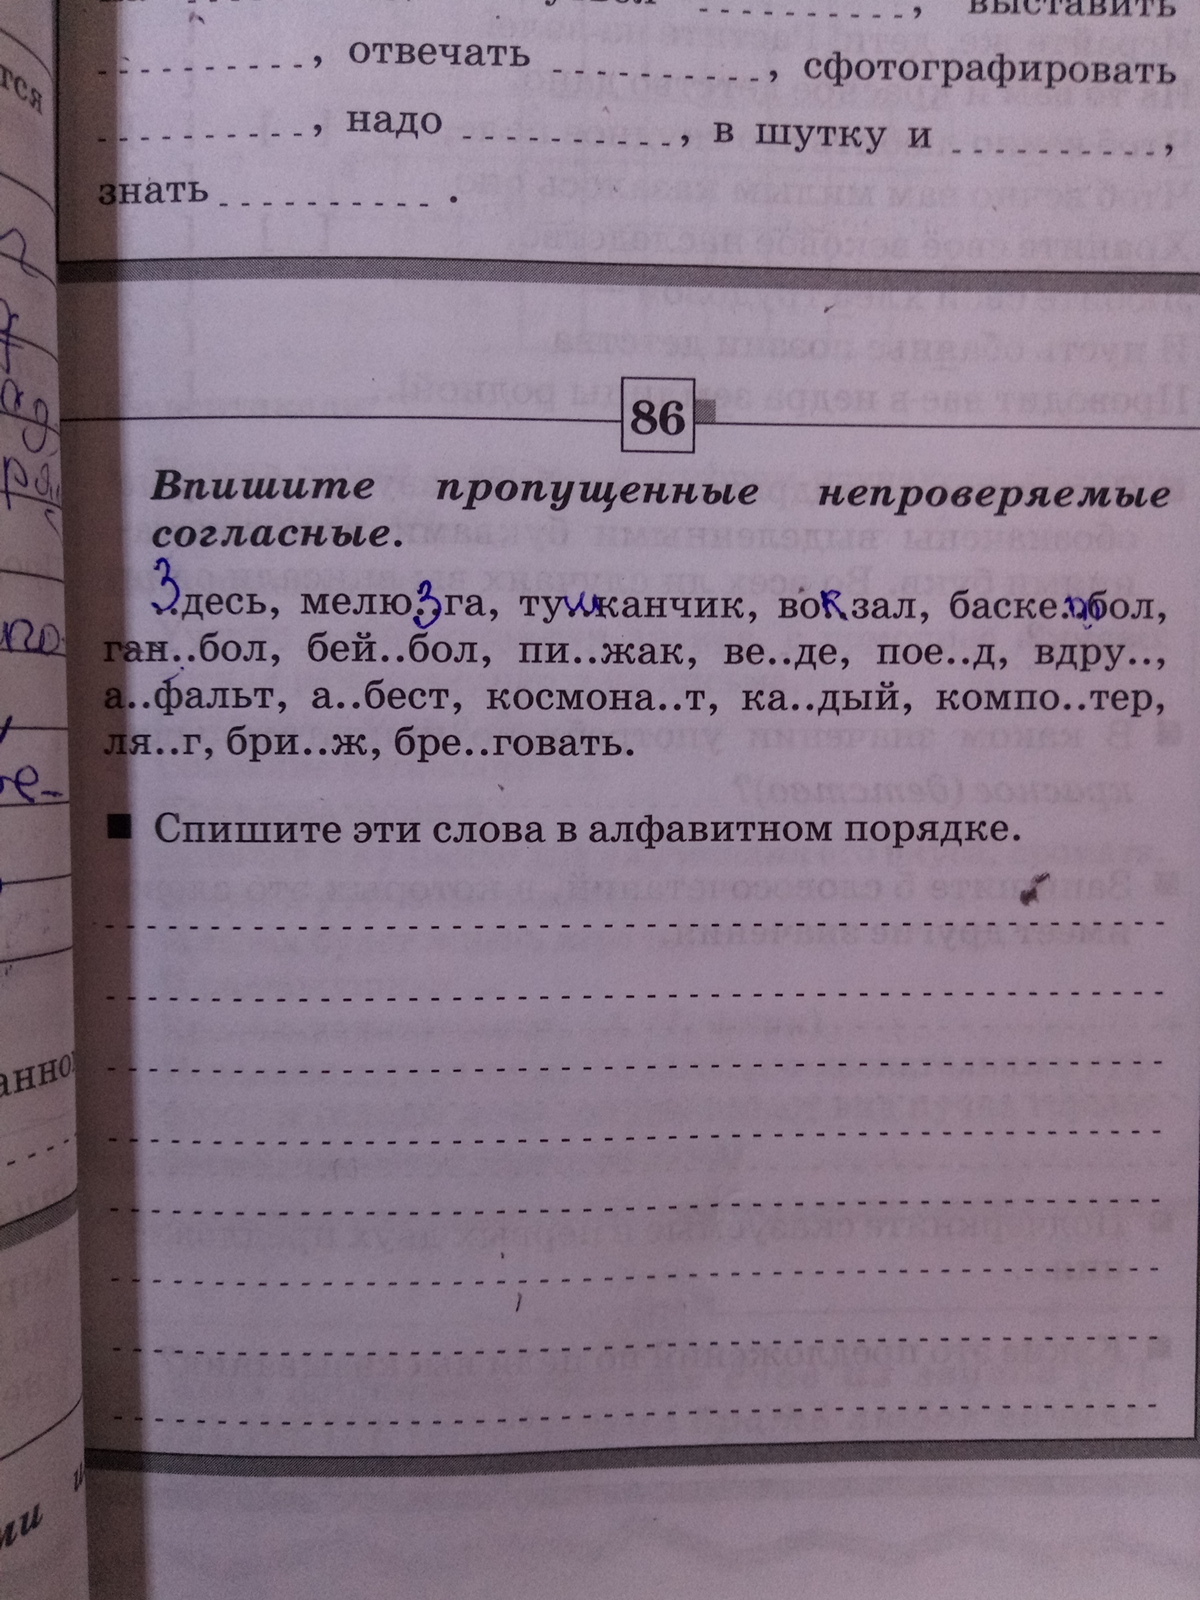 , выставить
, отвечать , сфотографировать
, надо , в шутку и ,
знать .
86
Впишите пропущенные непроверяемые
согласные.
Здесь, мелюзга, тушканчик, вокзал, баске..бол,
ган..бол, бей..бол, пи..жак, ве..де, пое..д, вдру..,
а..фальт, а..бест, космона..т, ка..дый, компо..тер,
ля..г, бри..ж, бре..говать.
■ Спишите эти слова в алфавитном порядке.
тся